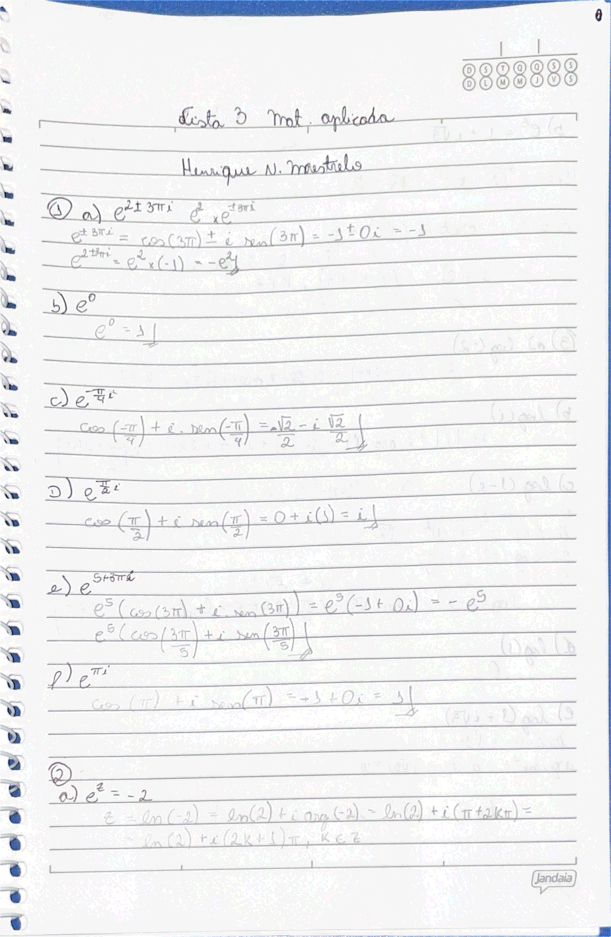 D S T Q Q S S
D L M M J V S
Lista 3 Mat. aplicada
Henrique N. Maestrelo
① a) e^{2± 3πi} e^2 × e^{±3πi}
e^{±3πi} = cos(3π) ± i sen(3π) = -1 ± 0i = -1
e^{2±3πi} = e^2 × (-1) = -e^2
b) e^0
e^0 = 1
c) e^{-π/4 i}
cos(-π/4) + i. sen(-π/4) = √2/2 - i √2/2
D) e^{π/2 i}
cos(π/2) + i sen(π/2) = 0 + i(1) = i
e) e^{5+3πi}
e^5 (cos(3π) + i. sen(3π)) = e^5 (-1 + 0i) = - e^5
e^5 (cos(3π/5) + i sen(3π/5)
f) e^{πi}
cos (π) + i sen(π) = -1 + 0i = 1
②
a) e^z = -2
z = ln(-2) = ln(2) + i arg(-2) = ln(2) + i(π+2kπ) =
= ln(2) + i(2k+1)π, k ∈ Z
Jandaia